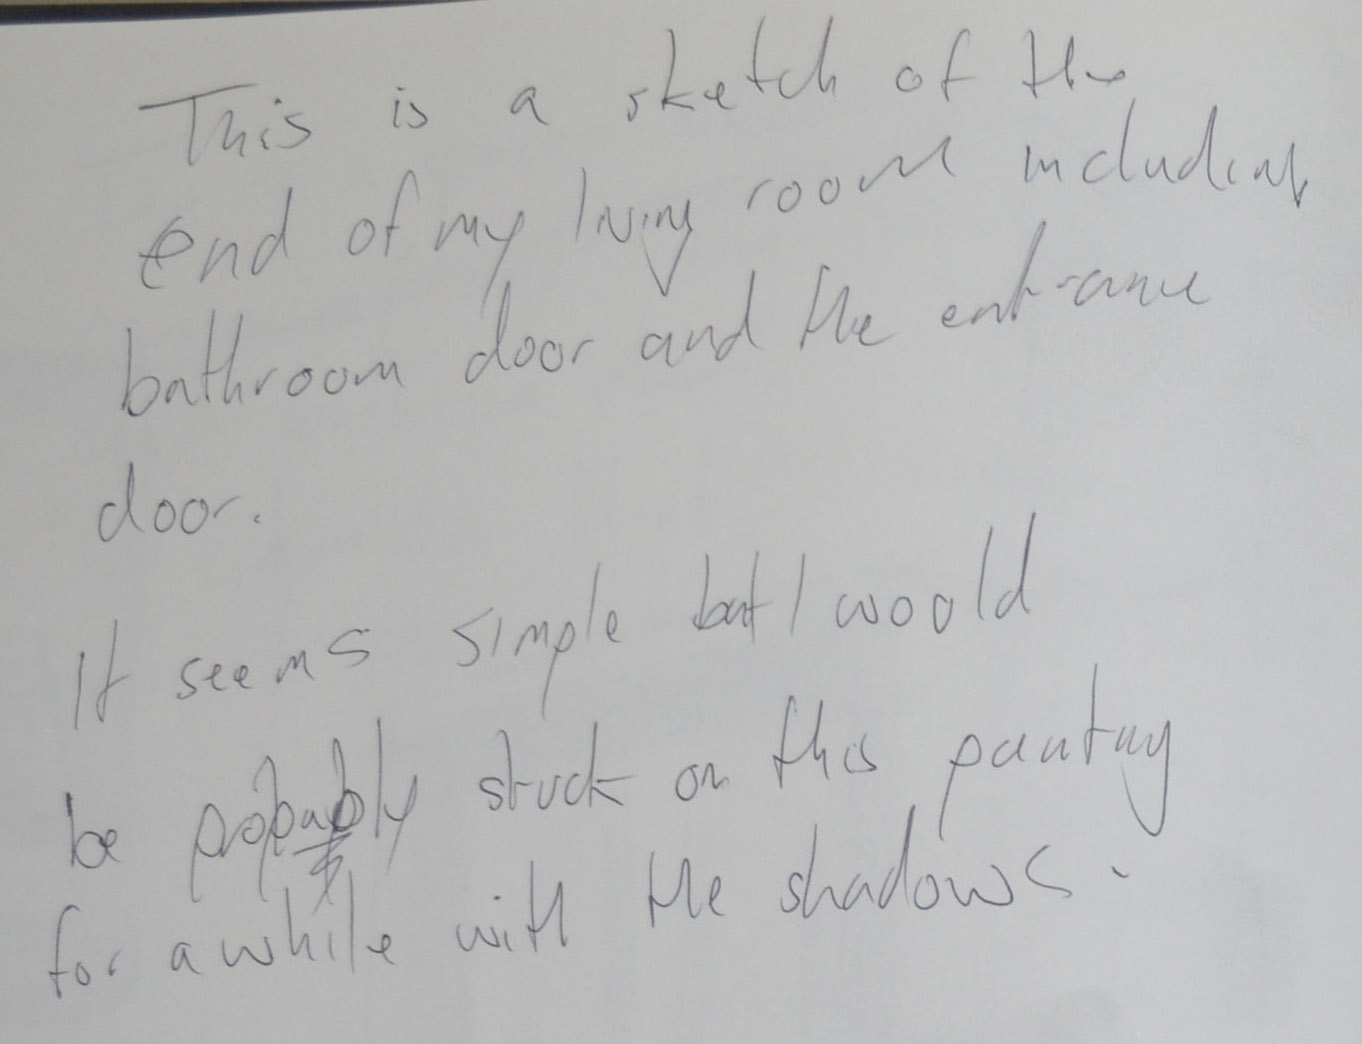 This is a sketch of the
end of my living room including
bathroom door and the entrance
door.
It seems simple but I woold
be probably stuck on this painting
for a while with the shadows.